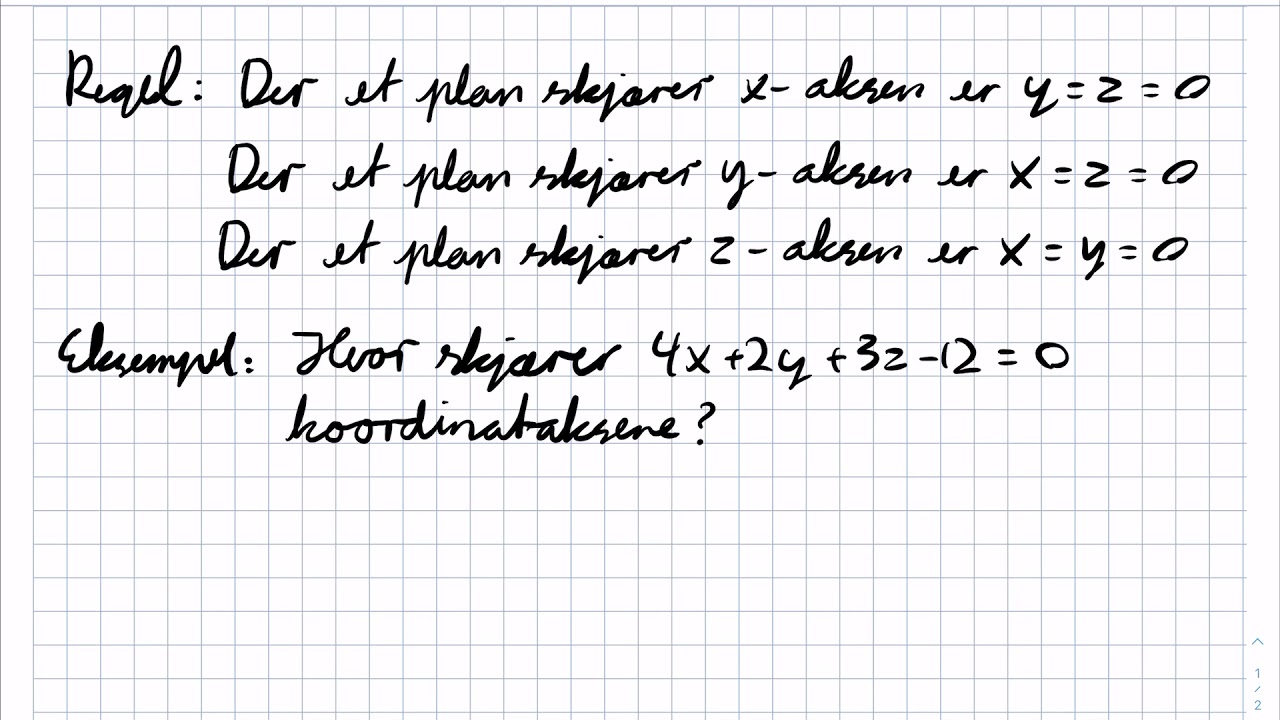 Regel: Der et plan skjærer x-aksen er y=z=0
Der et plan skjærer y-aksen er x=z=0
Der et plan skjærer z-aksen er x=y=0
Eksempel: Hvor skjærer 4x+2y+3z-12=0
koordinataksene?
1
/
2